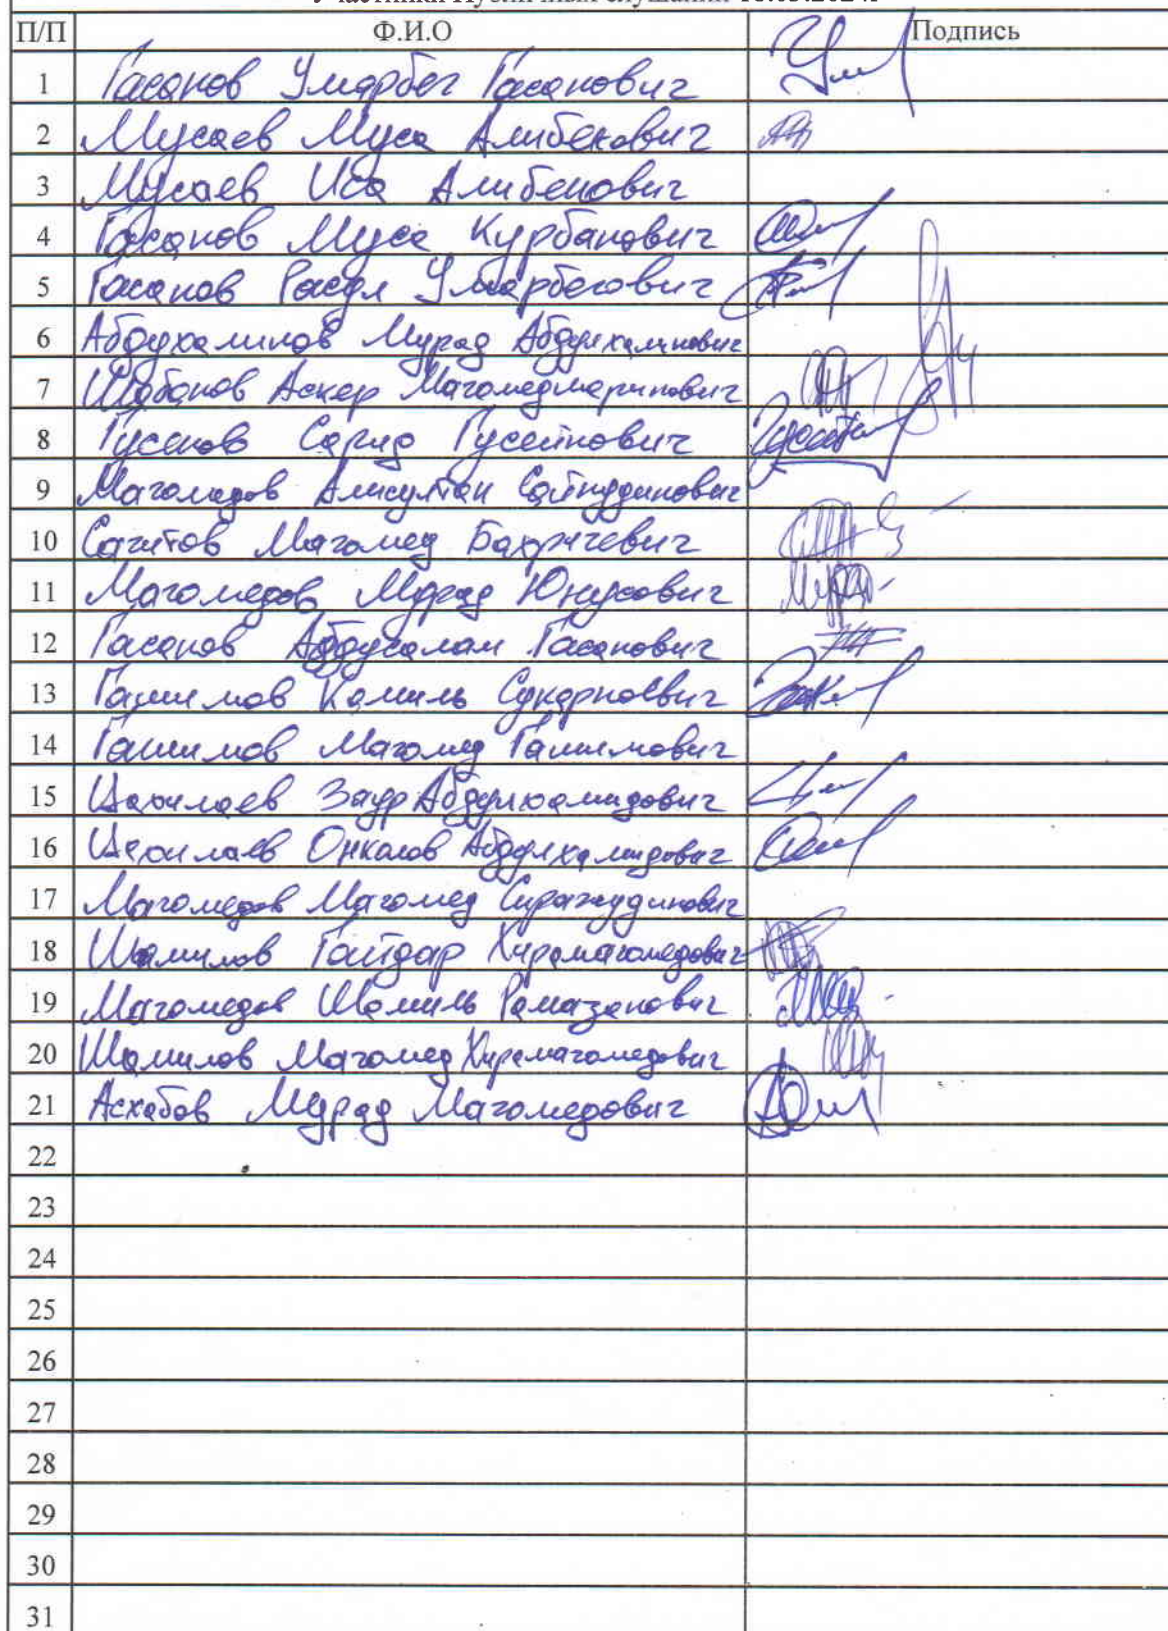 Участники Публичных слушаний
П/П Ф.И.О Подпись
1 Гасанов Умарбег Гасанович
2 Мусаев Муса Алибекович
3 Мусаев Иса Алибекович
4 Гасанов Муса Курбанович
5 Гасанов Расул Умарбегович
6 Абдухалимов Мурад Абдулхалимович
7 Шабанов Аскер
8 Гусенов Сагид Гусейнович
9 Магомедов Алисултан Сайпудинович
10 Сагитов Магомед
11 Магомедов Мурад Юнусович
12 Гасанов Абдусалам Гасанович
13 Гашимов Камиль Сукарноевич
14 Гашимов Магомед Гашимович
15 Цахилаев Заур Абдулхамидович
16 Цахилаев Абдулхамидович
17 Магомедов Магомед Сиражудинович
18 Шамилов Гайдар Хирамагомедович
19 Магомедов Шамиль Рамазанович
20 Шамилов Магомед Хирамагомедович
21 Асхабов Мурад Магомедович
22
23
24
25
26
27
28
29
30
31